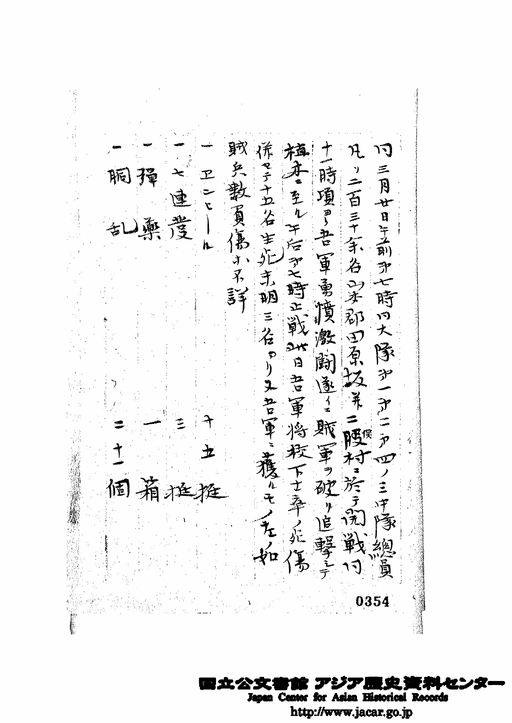 同三月廿日午前第七時同大隊第一第二第四ノ三中隊總員
凡ソ二百三十余名山本郡田原坂并ニ二股村ニ於テ開戦同
十一時頃ヨリ吾軍勇憤激闘遂ニ賊軍ヲ破リ追撃シテ
植木ニ至ル午后第七時止戦此日吾軍将校下士卒ノ死傷
併セテ十五名生死未明三名アリ又吾軍ニ獲ルモノ左ノ如
賊兵数員傷亦不詳
一 エンヒール 十五挺
一 七連發 三挺
一 弾藥 一箱
一 胴乱 二十一個
0354
国立公文書館 アジア歴史資料センター
Japan Center for Asian Historical Records
http://www.jacar.go.jp